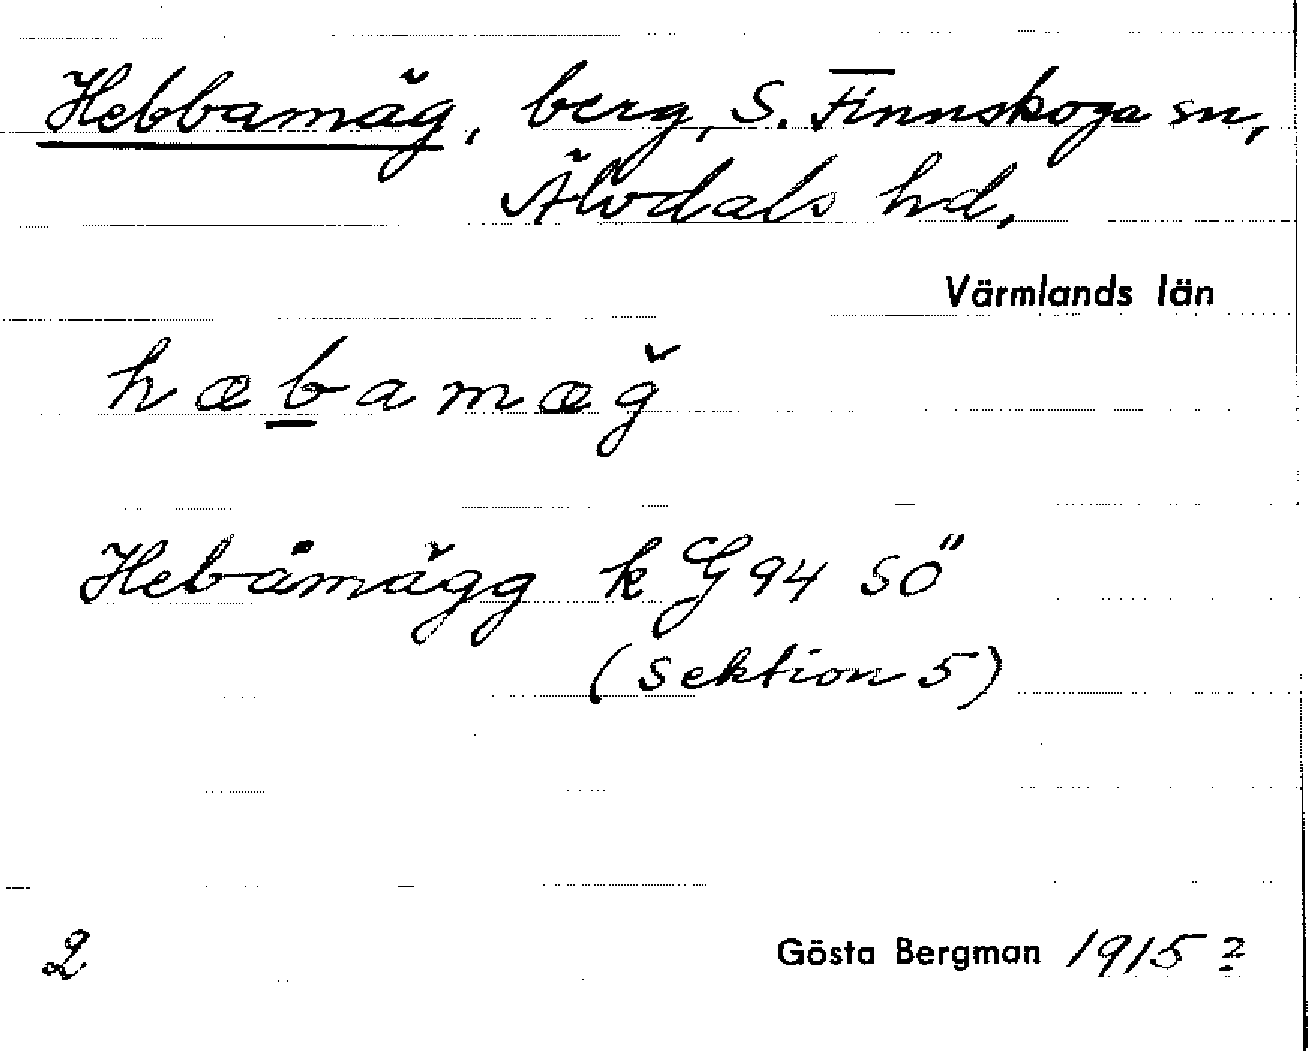 Hebbamäg, berg, S. Finnskoga sn,
Älvdals hd.
Värmlands län
hæb̲amæğ
Hebåmägg k G 94 SÖ
(Sektion 5)
2 Gösta Bergman 1915?